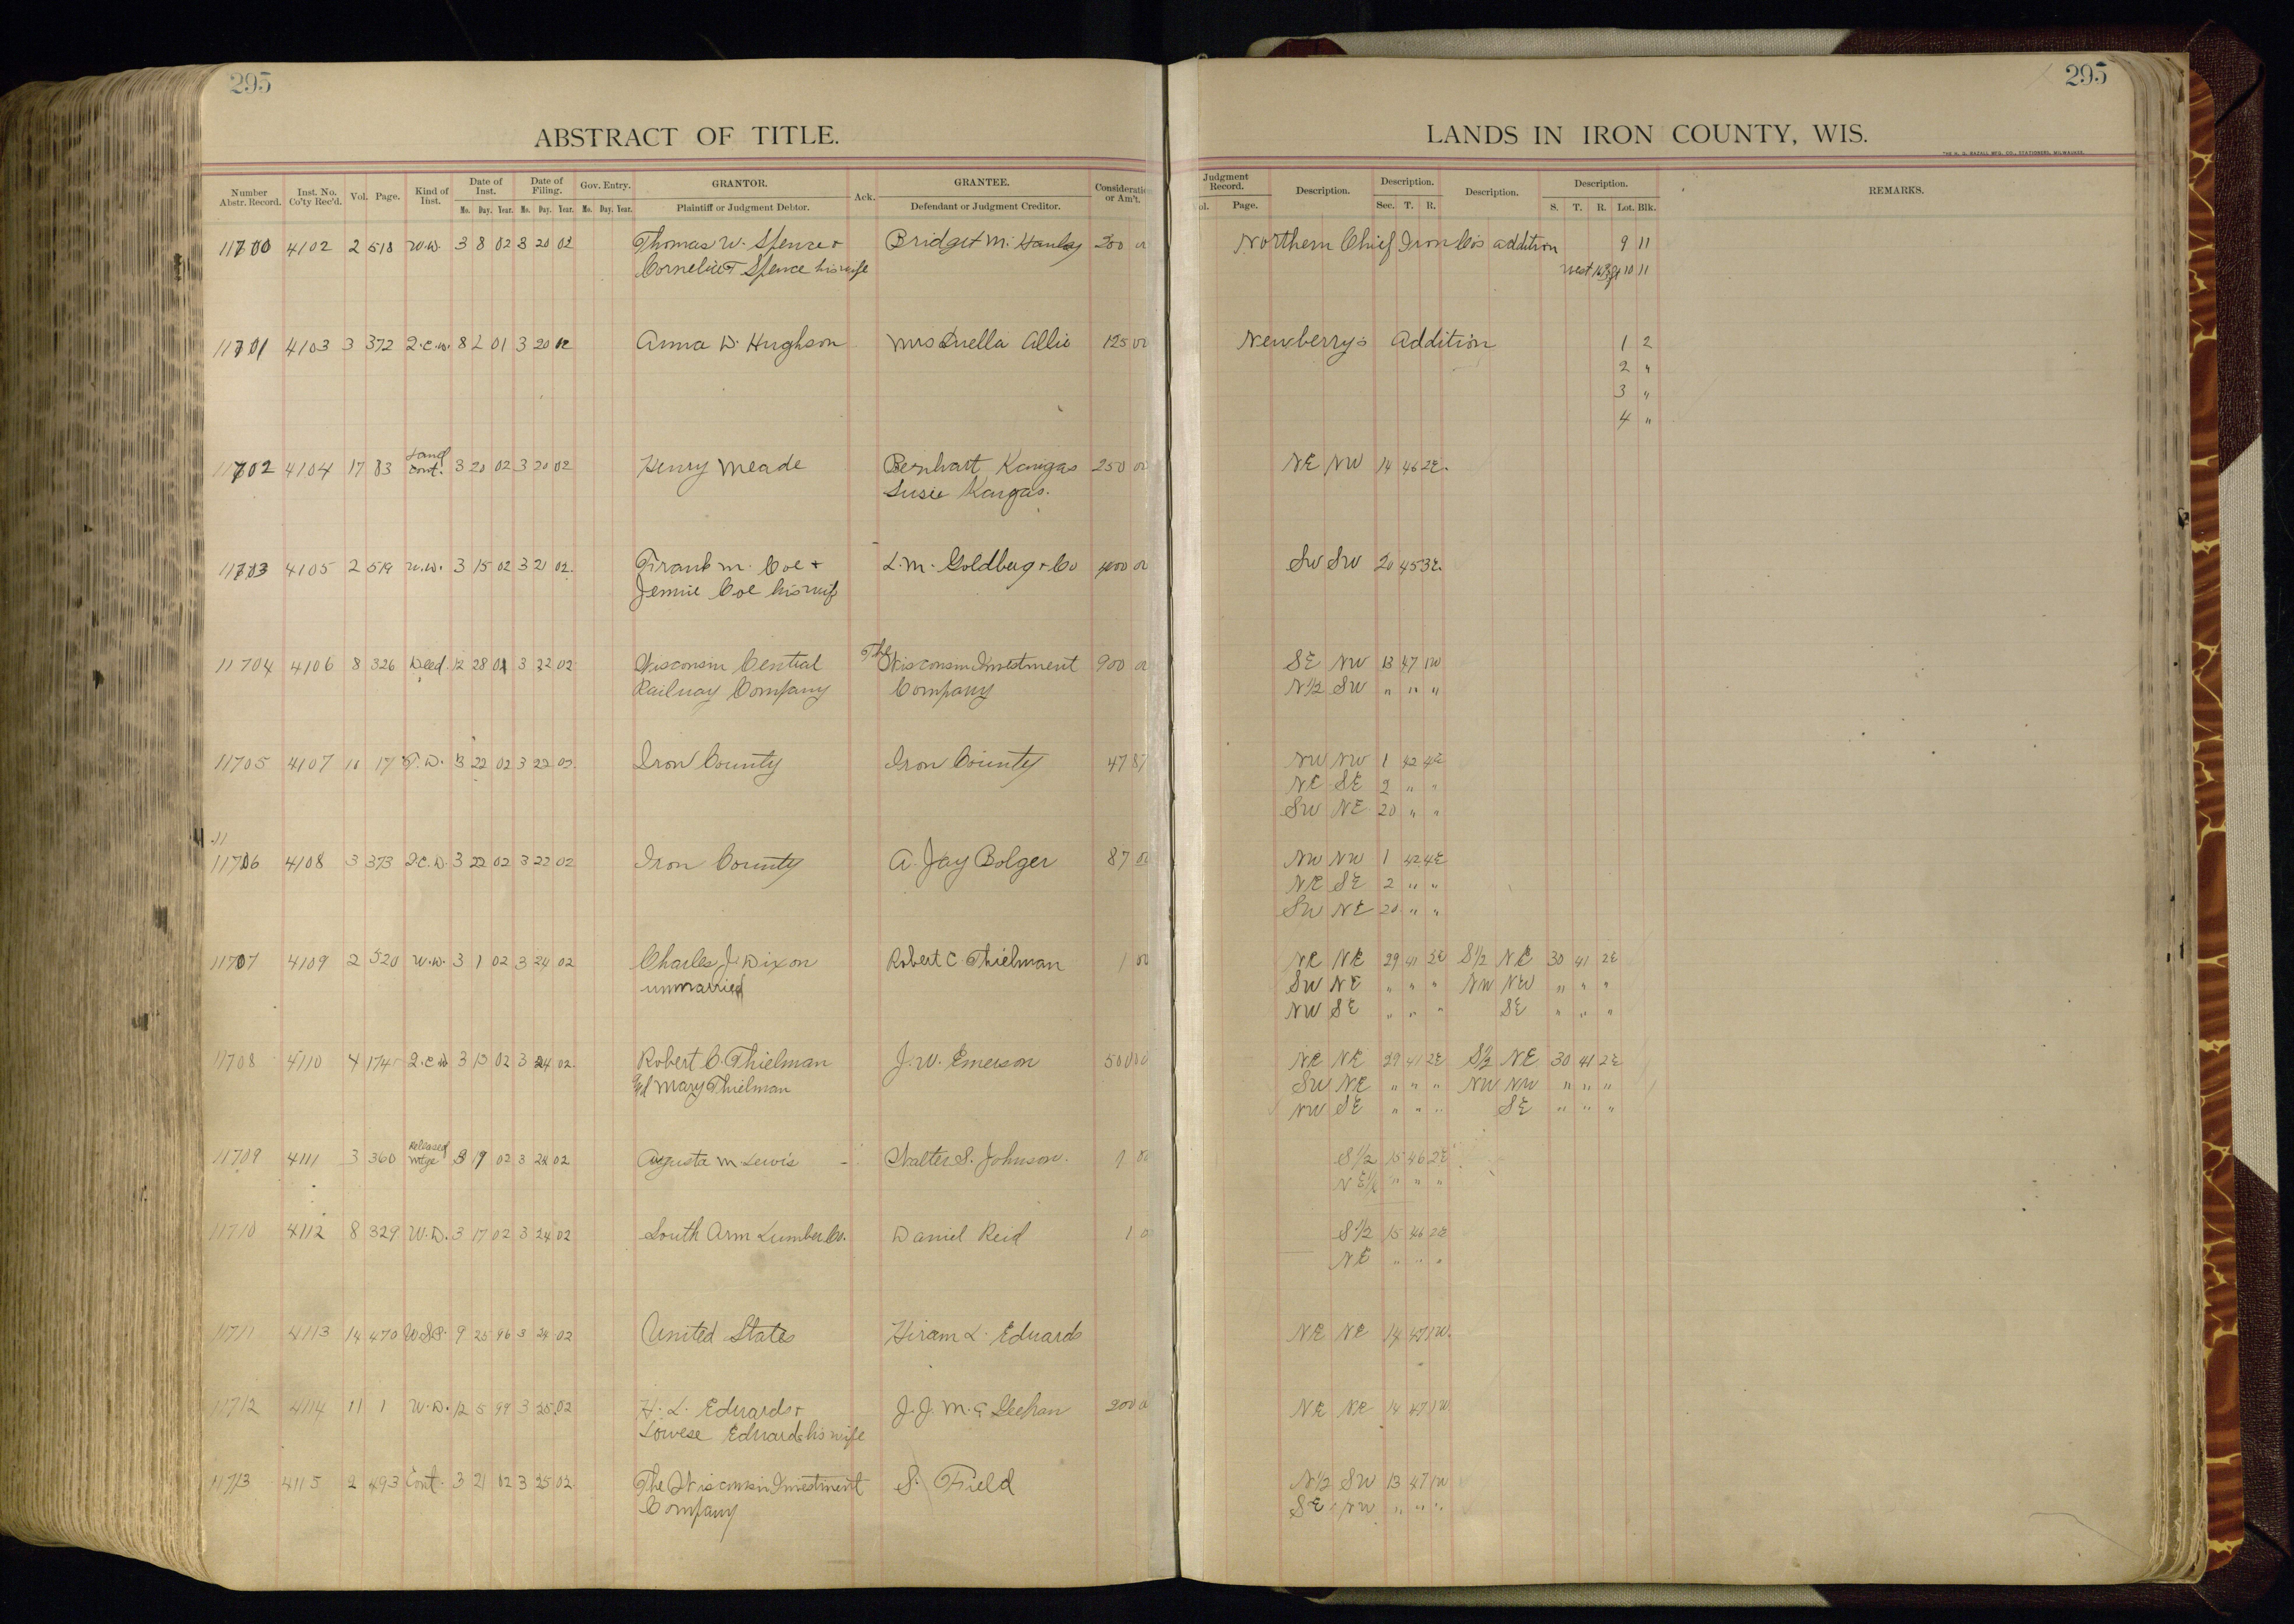 295
295
ABSTRACT OF TITLE.
LANDS IN IRON COUNTY, WIS.
Number Abstr. Record. Inst. No. Co'ty Rec'd. Vol. Page. Kind of Inst. Date of Inst. Mo. Day. Year. Date of Filing. Mo. Day. Year. Gov. Entry. Mo. Day. Year. GRANTOR. Plaintiff or Judgment Debtor. Ack. GRANTEE. Defendant or Judgment Creditor. Consideration or Am't. Judgment Record. Page. Description. Description. Sec. T. R. Description. Description. S. T. R. Lot. Blk. REMARKS.
11700 4102 2 518 W.D. 3 8 02 3 20 02 Thomas W. Spence + Bridget M. 200 00 Northern Chief Iron Co's addition 9 11
Spence his wife West 10 11
11701 4103 3 372 Q.C.D. 8 2 01 3 20 02 Anna D. Hughson Mrs Luella Allie 125 00 Newberry's Addition 1 2
2 "
3 "
4 "
11702 4104 17 83 Land Cont. 3 20 02 3 20 02 Henry Meade Bernhart Kangas 250 00 NE NW 14 46 2E.
Susie Kangas.
11703 4105 2 519 W.D. 3 15 02 3 21 02. Frank M. Coe + L.M. Goldberg + Co 00 SW SW 20 45 3E.
Jennie Coe his wife
11704 4106 8 326 Deed. 12 28 01 3 22 02 Wisconsin Central The Wisconsin Investment 900 00 SE NW 13 47 1W
Railway Company Company N1/2 SW " " "
11705 4107 17 T.D. 3 22 02 3 22 02. Iron County Iron County 47 87 NW NW 1 42 4E
NE SE 2 " "
SW NE 20 " "
11706 4108 3 373 Q.C.D. 3 22 02 3 22 02 Iron County A. Jay Bolger 87 00 NW NW 1 42 4E
NE SE 2 " "
SW NE 20 " "
11707 4109 2 520 W.D. 3 1 02 3 24 02 Charles J. Dixon Robert C. Thielman 1 00 NE NE 29 41 2E S1/2 NE 30 41 2E
unmarried SW NE " " " NW NW " " "
NW SE " " " SE " " "
11708 4110 4 174 Q.C.D. 3 13 02 3 24 02. Robert C. Thielman J.W. Emerson NE NE 29 41 2E S1/2 NE 30 41 2E
and Mary Thielman SW NE " " " NW NW " " "
NW SE " " " SE " " "
11709 4111 3 360 Released Mtge 3 19 02 3 24 02 Augusta M Lewis Walter S. Johnson. 1 00 S1/2 15 46 2E
NE1/4 " " "
11710 4112 8 329 W.D. 3 17 02 3 24 02 South Arm Lumber Co. Daniel Reid 1 00 S1/2 15 46 2E
NE " " "
11711 4113 14 470 9 25 96 3 24 02 United States Hiram L. Edwards NE NE 14 47 1W.
11712 4114 11 1 W.D. 12 5 99 3 25 02 H. L. Edwards + J.J. McGeehan 200 00 NE NE 14 47 1W
Lowese Edwards his wife
11713 4115 2 493 Cont. 3 21 02 3 25 02 The Wisconsin Investment S. Field N1/2 SW 13 47 1W
Company SE NW " " "